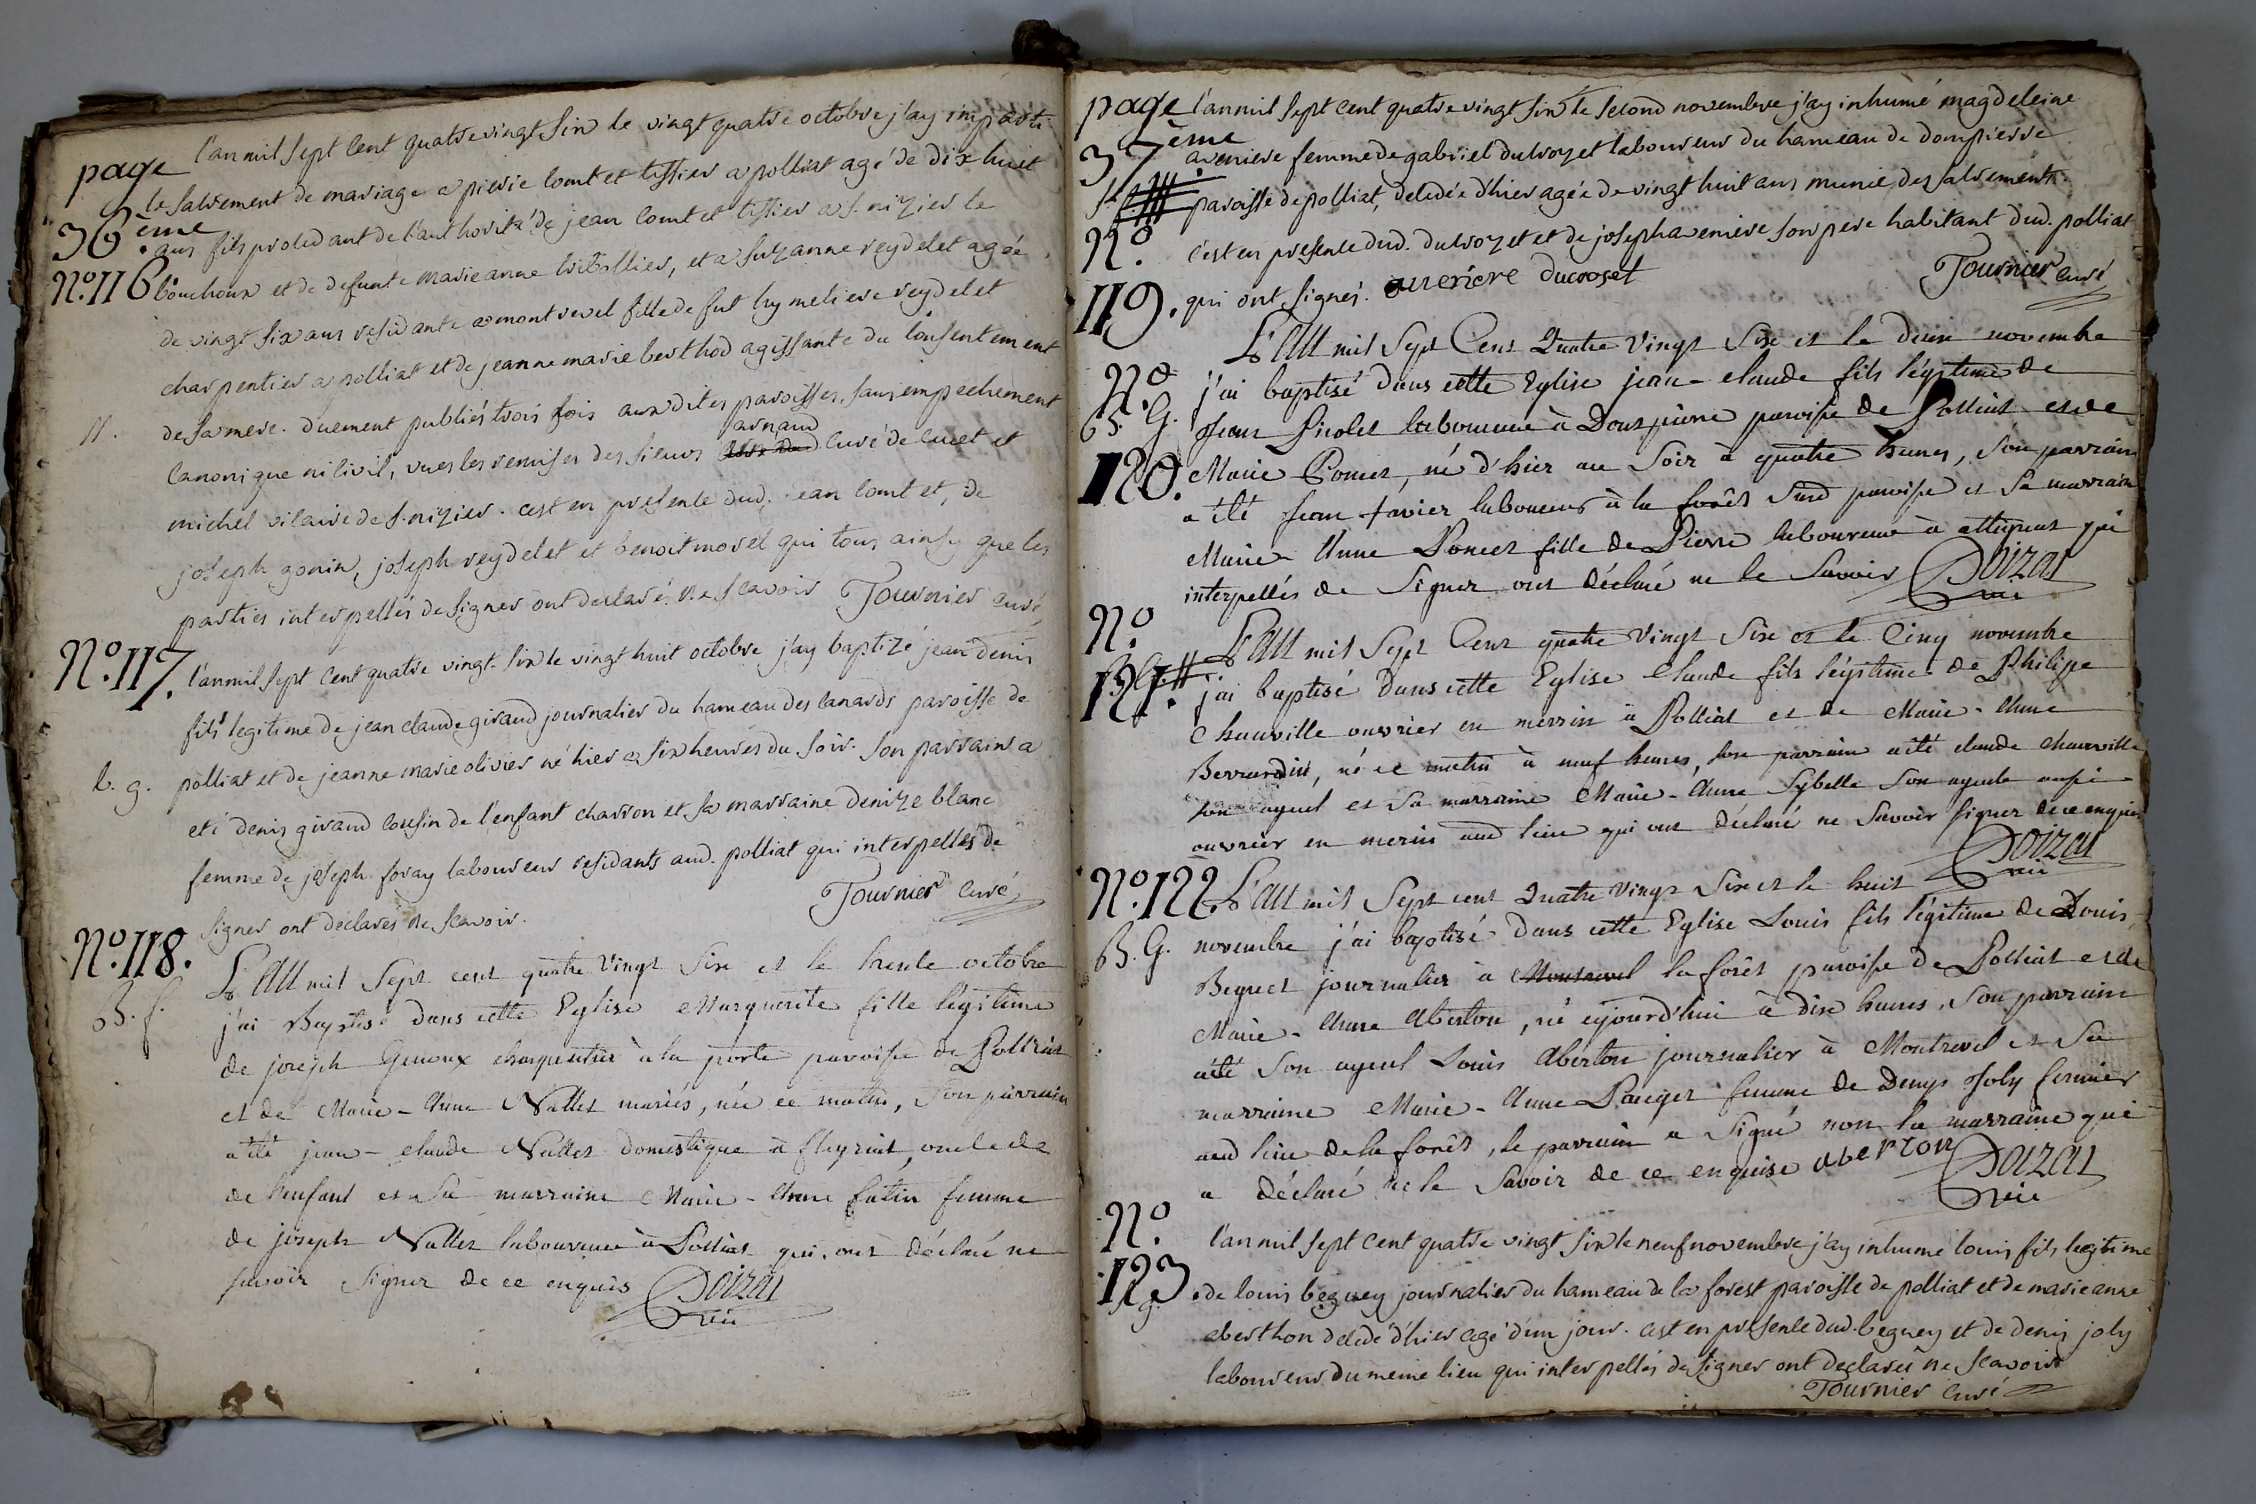 page
36.ème
N.o 116.
l'an mil sept cent quatre vingt six le vingt quatre octobre j'ay imparti
le sacrement de mariage a pierre comtet tissier a polliat agé de dix huit
ans fils procedant de l'authorité de jean comtet tissier a s. nizier le
bouchoux et de defunte marie anne tribollier, et a suzanne reydelet agée
de vingt six ans residante a montrevel fille de fut hymetiere reydelet
charpentier a polliat et de jeanne marie berthod agissante du consentement
M.
de sa mere. duement publiés trois fois auxdites paroisses, sans empechement
arnaud
canonique ni civil, vues les remises des sieurs curé de cuet et
michel vicaire de s. nizier. c'est en presence dud. jean comtet, de
joseph gonin, joseph reydelet et benoit morel qui tous ainsy que les
parties interpellés de signer ont declaré ne scavoir Tournier curé
N.o 117.
l'an mil sept cent quatre vingt six le vingt huit octobre j'ay baptizé jean denis
fils legitime de jean claude giraud journalier du hameau des canards paroisse de
b. g.
polliat et de jeanne marie olivier né hier a six heures du soir. son parrain a
eté denis giraud cousin de l'enfant charron et sa marraine denize blanc
femme de joseph foray laboureur residants aud. polliat qui interpellés de
signer ont declarés ne scavoir. Tournier curé
N.o 118.
B. f.
L'an mil sept cent quatre vingt six et le trente octobre
j'ai Baptisé dans cette Eglise Marguerite fille légitime
de joseph Genoux charpentier à la porte paroisse de Polliat
et de Marie-Anne Nallet mariés, née ce matin, son parrain
a été jean-claude Nallet domestique à fleyriat, oncle de
de l'enfant et sa marraine Marie-Anne futin femme
de joseph Nallet laboureur à Polliat qui ont déclaré ne
savoir signer de ce enquis Doizat
vic
page
37ème
N.o
119.
l'an mil sept cent quatre vingt six le second novembre j'ay inhumé magdeleine
aveniere femme de gabriel ducrozet laboureur du hameau de dompierre
paroisse de polliat, decedée d'hier agée de vingt huit ans munie des sacrements.
c'est en presence dud. ducrozet et de joseph aveniere son pere habitant dud. polliat
qui ont signés. averiere ducroset Tournier curé
N.o
B. G.
120.
L'an mil sept Cent Quatre vingt six et le deux novembre
j'ai baptisé dans cette Eglise jean-claude fils légitime de
Jean Picolet laboureur à Dompierre paroisse de Polliat et de
Marie Poncet, né d'hier au soir à quatre heures, son parrain
a été Jean favier laboureur à la forêt susd paroisse et sa marraine
Marie-Anne Poncet fille de Pierre laboureur à attignat qui
interpellés de signer ont déclaré ne le savoir Doizat
vic
N.o
B. G.
121.
L'an mil sept Cent quatre vingt six et le Cinq novembre
j'ai baptisé dans cette Eglise Claude fils légitime de Philipe
Chanville ouvrier en merrin à Polliat et de Marie-Anne
Bernardin, né ce matin à neuf heures, son parrain a été claude chanville
son ayeul et sa marraine Marie-Anne Sybelle son ayeule aussi
ouvrier en merin aud lieu qui ont déclaré ne savoir signer de ce enquis
Doizat
vic
N.o 122.
B. G.
L'an mil sept cent Quatre vingt six et le huit
novembre j'ai baptisé dans cette Eglise Louis fils légitime de Louis
Beguet journalier à Montrevel la forêt paroisse de Polliat et de
Marie-Anne Aberton, né ejourd'hui à dix heures, son parrain
a été son ayeul Louis Aberton journalier à Montrevel et sa
marraine Marie-Anne Pauget femme de Denys Joly fermier
aud lieu de la forêt, le parrain a signé non la marraine qui
a déclaré ne le savoir de ce enquise aberton Doizat
vic
N.o
123.
g.
l'an mil sept cent quatre vingt six le neuf novembre j'ay inhumé louis fils legitime
de louis beguey journalier du hameau de la forest paroisse de polliat et de marie anne
aberthon decedé d'hier agé d'un jour. c'est en presence dud. beguey et de denis joly
laboureur du meme lieu qui interpellés de signer ont declarés ne scavoir
Tournier curé